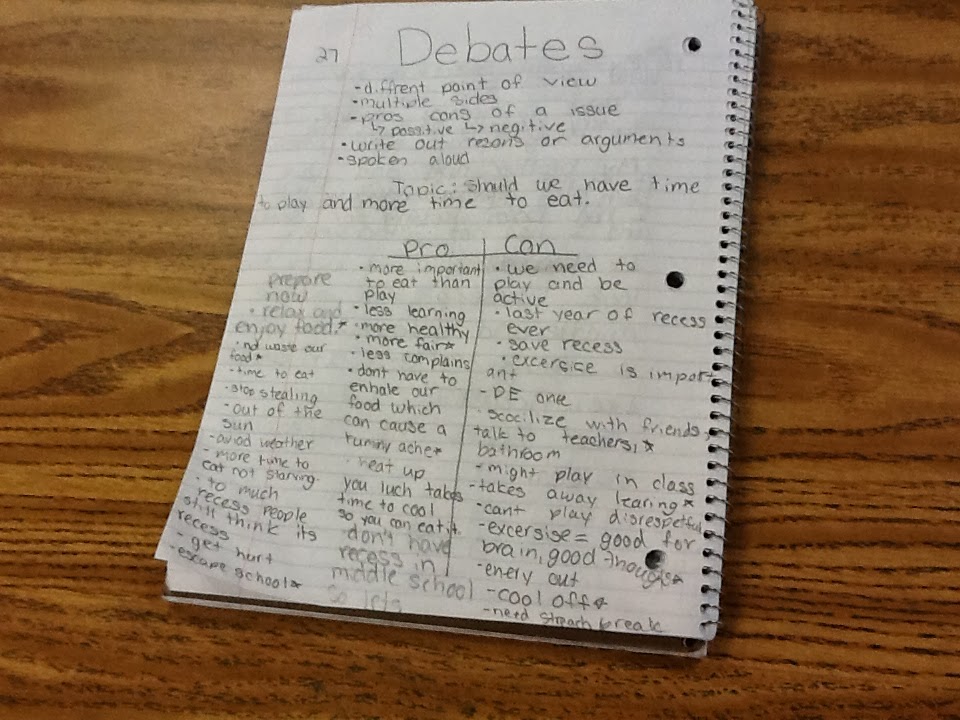 27
Debates
-diffrent point of view
-multiple sides
-pros cons of a issue
↳ possitive ↳ negitive
•write out resons or arguments
-spoken aloud
Topic: Should we have time
to play and more time to eat.
Pro
prepare
now
•relax and
enjoy food.*
•no waste our
food*
-time to eat
-stop stealing
-out of the
sun
-aviod weather
-more time to
eat not starving.
•to much
recess people
still think its
recess
-get hurt
-escape school*
•more important
to eat than
play
•less learning
•more healthy
•more fair*
•less complains
•dont have to
enhale our
food which
can cause a
tummy ache*
•heat up
you luch takes
time to cool
so you can eat it.
•don't have
recess in
middle school
so lets
Con
•we need to
play and be
active
•last year of recess
ever
•save recess
•excersise is import
ant
-PE one
scocilize with friends,
talk to teachers, *
bathroom
-might play in class
-takes away learing*
-cant play disrespetful
-excersise= good for
brain, good thougts*
-enery out
-cool off*
-need strech break